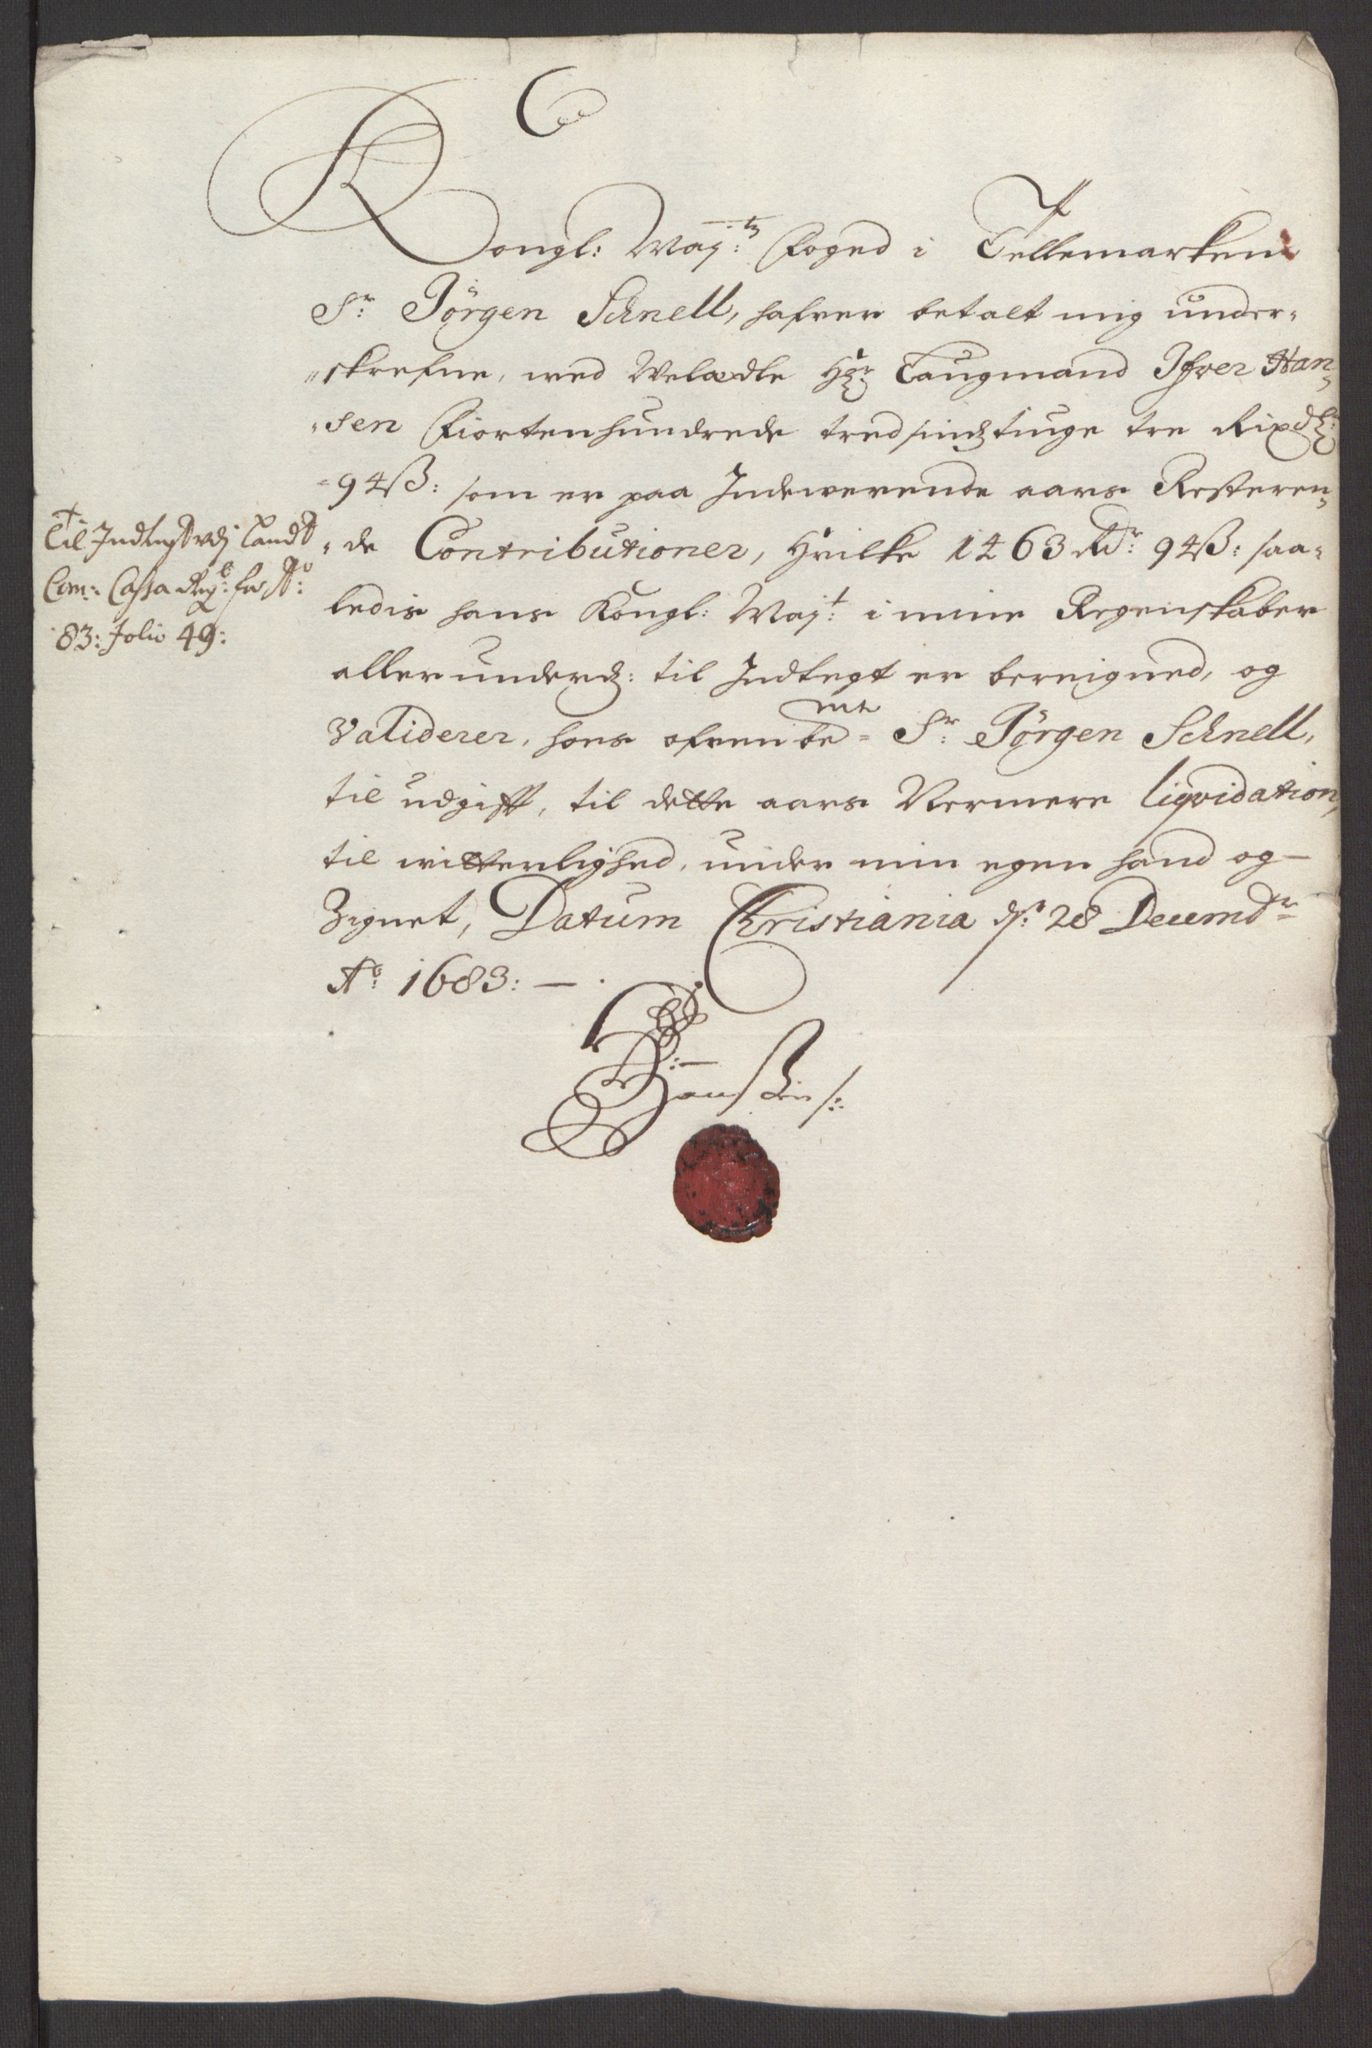 Kongl: May:ts Foged i Tellemarken
Sr: Jörgen Schnell, hafver betalt mig under-
skrefne, med Velædle Hr: Laugmand Ifver Han-
sen Fiortenhundrede tredsindstiuge tre Rixdlr:
94ß: som er paa Indewerende aars Resteren-
de Contributioner, Hvilke 1463 Rdr: 94ß: saa-
ledis hans Kongl: May:t i mine Regenskaber
allerunderd: til Indtegt er bereigned, og
Validerer, hos ofvenbemte Sr: Jörgen Schnell,
til udgifft, til dette aars Nermere liqvidation,
til vitterlighed, under min egen hand og
Zignet, Datum Christiania ds: 28 Decembr
Ao: 1683:
Til Indtegt vdj Landt
Com: Cassa Reg: for Ao:
83: folio 49: